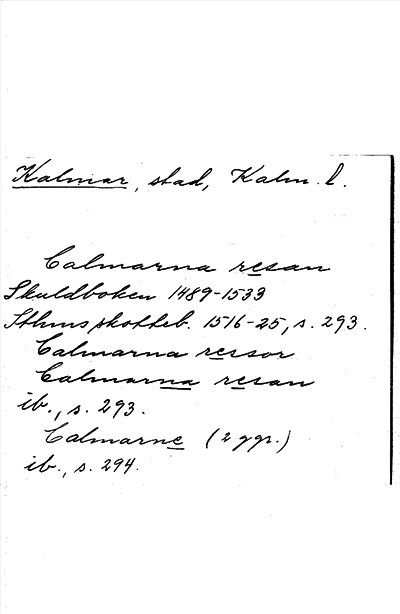 Kalmar, stad, Kalm. l.
Calmarna resan
Skuldboken 1489-1533
Sthms skotteb. 1516-25, s. 293.
Calmarna ressor
Calmarna resan
ib., s. 293.
Calmarne (2 ggr.)
ib., s. 294.